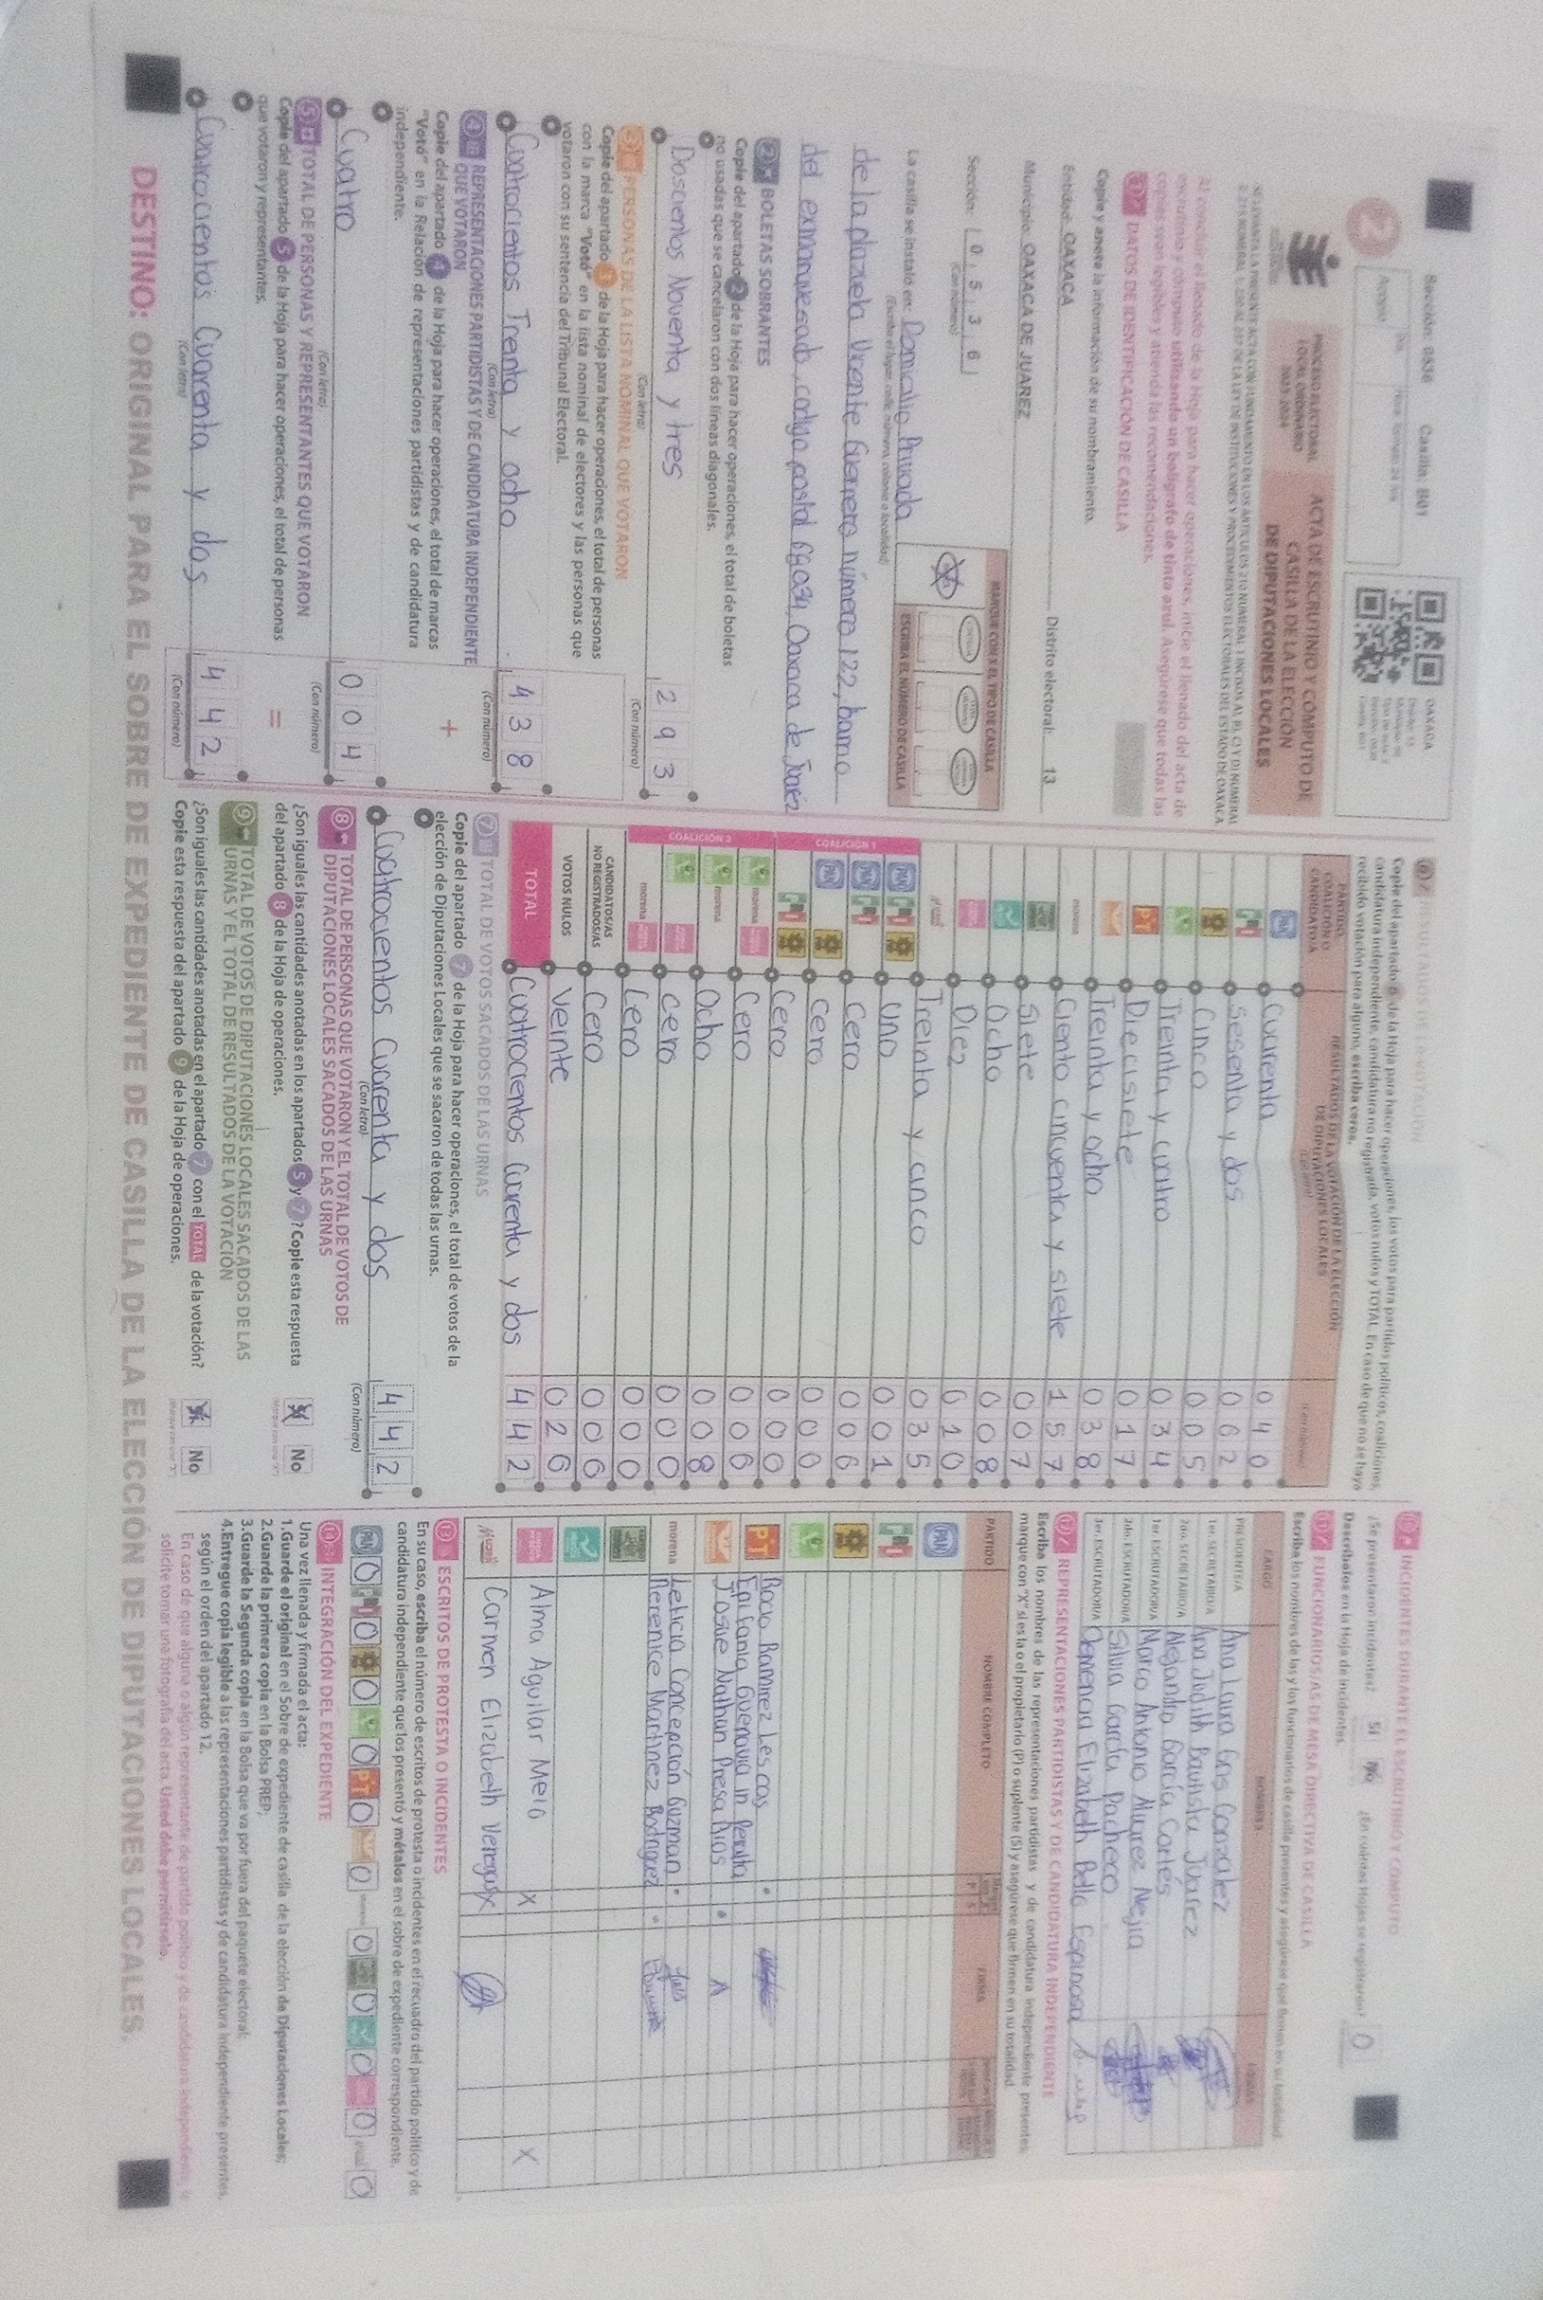 Sección: 0536 Casilla: B01
OAXACA
PROCESO ELECTORAL
LOCAL ORDINARIO
2023-2024
ACTA DE ESCRUTINIO Y CÓMPUTO DE
CASILLA DE LA ELECCIÓN
DE DIPUTACIONES LOCALES
Al concluir el llenado de la Hoja para hacer operaciones, inicie el llenado del acta de
escrutinio y cómputo utilizando un bolígrafo de tinta azul. Asegúrese que todas las
copias sean legibles y atienda las recomendaciones.
1 DATOS DE IDENTIFICACIÓN DE CASILLA
Copie y anote la información de su nombramiento.
Entidad: OAXACA
Distrito electoral: 13
Municipio: OAXACA DE JUAREZ
Sección: 0 5 3 6
(Con número)
MARQUE CON X EL TIPO DE CASILLA
ESCRIBA EL NÚMERO DE CASILLA
La casilla se instaló en: Domicilio Privado
(Escriba el lugar, calle, número, colonia o localidad)
de la plazuela Vicente Guerrero número 122, barrio
del exmarquesado, codigo postal 68034, Oaxaca de Juaréz
2 BOLETAS SOBRANTES
Copie del apartado 2 de la Hoja para hacer operaciones, el total de boletas
no usadas que se cancelaron con dos líneas diagonales.
Doscientos Noventa y tres 2 9 3
(Con letra) (Con número)
3 PERSONAS DE LA LISTA NOMINAL QUE VOTARON
Copie del apartado 3 de la Hoja para hacer operaciones, el total de personas
con la marca "Votó" en la lista nominal de electores y las personas que
votaron con su sentencia del Tribunal Electoral.
Cuatrocientos Treinta y ocho 4 3 8
(Con letra) (Con número)
4 REPRESENTACIONES PARTIDISTAS Y DE CANDIDATURA INDEPENDIENTE
QUE VOTARON
Copie del apartado 4 de la Hoja para hacer operaciones, el total de marcas
"Votó" en la Relación de representaciones partidistas y de candidatura
independiente.
+
Cuatro 0 0 4
(Con letra) (Con número)
5 TOTAL DE PERSONAS Y REPRESENTANTES QUE VOTARON
Copie del apartado 5 de la Hoja para hacer operaciones, el total de personas
que votaron y representantes.
=
Cuatrocientos Cuarenta y dos 4 4 2
(Con letra) (Con número)
6 RESULTADOS DE LA VOTACIÓN
Copie del apartado 6 de la Hoja para hacer operaciones, los votos para partidos políticos, coaliciones,
candidatura independiente, candidatura no registrada, votos nulos y TOTAL. En caso de que no se haya
recibido votación para alguno, escriba ceros.
PARTIDO,
COALICIÓN O
CANDIDATO/A
RESULTADOS DE LA VOTACIÓN DE LA ELECCIÓN
DE DIPUTACIONES LOCALES
(Con letra) (Con número)
PAN Cuarenta 0 4 0
PRI Sesenta y dos 0 6 2
Cinco 0 0 5
Treinta y cuatro 0 3 4
PT Diecisiete 0 1 7
Treinta y ocho 0 3 8
morena Ciento cincuenta y siete 1 5 7
Siete 0 0 7
Ocho 0 0 8
Diez 0 1 0
Treinta y cinco 0 3 5
COALICIÓN 1
PAN PRI Uno 0 0 1
PAN PRI Cero 0 0 0
PAN Cero 0 0 0
PRI Cero 0 0 0
COALICIÓN 2
morena Cero 0 0 0
morena Ocho 0 0 8
Cero 0 0 0
morena Cero 0 0 0
CANDIDATOS/AS
NO REGISTRADOS/AS Cero 0 0 0
VOTOS NULOS Veinte 0 2 0
TOTAL Cuatrocientos Cuarenta y dos 4 4 2
7 TOTAL DE VOTOS SACADOS DE LAS URNAS
Copie del apartado 7 de la Hoja para hacer operaciones, el total de votos de la
elección de Diputaciones Locales que se sacaron de todas las urnas.
Cuatrocientos Cuarenta y dos 4 4 2
(Con letra) (Con número)
8 TOTAL DE PERSONAS QUE VOTARON Y EL TOTAL DE VOTOS DE
DIPUTACIONES LOCALES SACADOS DE LAS URNAS
¿Son iguales las cantidades anotadas en los apartados 5 y 7? Copie esta respuesta
del apartado 8 de la Hoja de operaciones.
Sí No
9 TOTAL DE VOTOS DE DIPUTACIONES LOCALES SACADOS DE LAS
URNAS Y EL TOTAL DE RESULTADOS DE LA VOTACIÓN
¿Son iguales las cantidades anotadas en el apartado 7 con el TOTAL de la votación?
Copie esta respuesta del apartado 9 de la Hoja de operaciones.
Sí No
10 INCIDENTES DURANTE EL ESCRUTINIO Y CÓMPUTO
¿Se presentaron incidentes? Sí No ¿En cuántas Hojas se registraron? 0
Descríbalos en la Hoja de incidentes.
11 FUNCIONARIOS/AS DE MESA DIRECTIVA DE CASILLA
Escriba los nombres de las y los funcionarios de casilla presentes y asegúrese que firmen en su totalidad
CARGO NOMBRES FIRMAS
PRESIDENTE/A Ana Laura Gris Gonzalez
1er. SECRETARIO/A Ana Judith Bautista Juárez
2do. SECRETARIO/A Alejandro García Cortés
1er. ESCRUTADOR/A Marco Antonio Alvarez Mejia
2do. ESCRUTADOR/A Silvia García Pacheco
3er. ESCRUTADOR/A Clemencia Elizabeth Bello Espinosa
12 REPRESENTACIONES PARTIDISTAS Y DE CANDIDATURA INDEPENDIENTE
Escriba los nombres de las representaciones partidistas y de candidatura independiente presentes,
marque con "X" si es la o el propietario (P) o suplente (S) y asegúrese que firmen en su totalidad
PARTIDO NOMBRE COMPLETO P S FIRMA
PAN
PRI
PT Rocio Ramirez Lescas
Epifania in Peralta
Josue Nathan Presa Rios
morena Leticia Concepción Guzman
Berenice Martinez Rodriguez
Alma Aguilar Melo X X
Carmen Elizabeth Venegas X
13 ESCRITOS DE PROTESTA O INCIDENTES
En su caso, escriba el número de escritos de protesta o incidentes en el recuadro del partido político y de
candidatura independiente que los presentó y métalos en el sobre de expediente correspondiente.
PAN 0 PRI 0 0 0 PT 0 0 morena 0 0 0 0 0
14 INTEGRACIÓN DEL EXPEDIENTE
Una vez llenada y firmada el acta:
1.Guarde el original en el Sobre de expediente de casilla de la elección de Diputaciones Locales;
2.Guarde la primera copia en la Bolsa PREP;
3.Guarde la Segunda copia en la Bolsa que va por fuera del paquete electoral;
4.Entregue copia legible a las representaciones partidistas y de candidatura independiente presentes,
según el orden del apartado 12.
En caso de que alguna o algún representante de partido político y de candidatura independiente, le
solicite tomar una fotografía del acta, Usted debe permitírselo.
DESTINO: ORIGINAL PARA EL SOBRE DE EXPEDIENTE DE CASILLA DE LA ELECCIÓN DE DIPUTACIONES LOCALES.